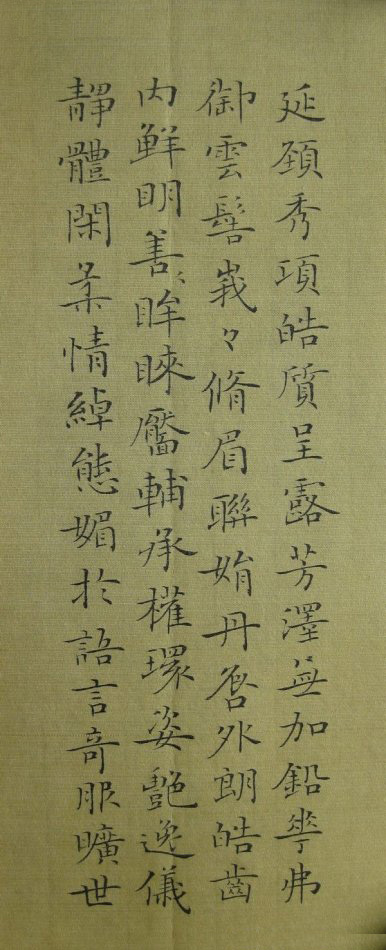 延頚秀項皓質呈露芳澤無加鉛華弗
御雲髻峩々脩眉聯娟丹唇外朗皓齒
内鮮明善〻眸睞靨輔承權瓌姿艶逸儀
靜體閑柔情綽態媚於語言奇服曠世